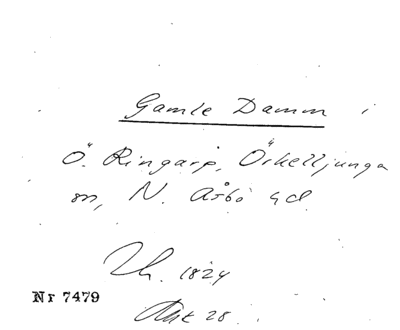 Gamle Damm i
Ö. Ringarp, Örkelljunga
sn, N. Åsbo hd.
1824
Nr 7479
28.